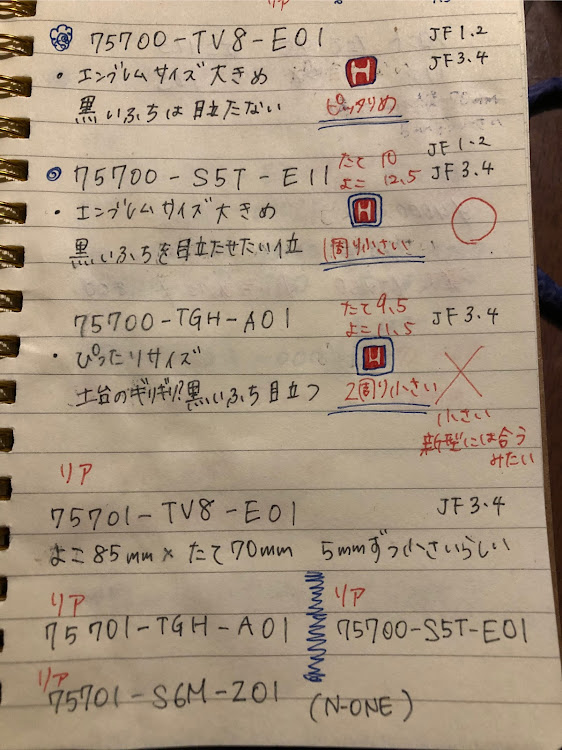 リア
75700-TV8-E01 JF1.2
JF3.4
・エンブレムサイズ大きめ H
黒いふちは目立たない ピッタリめ
75700-S5T-E11 たて10 JF1.2
よこ12.5 JF3.4
・エンブレムサイズ大きめ H
黒いふちを目立たせたい位 1周り小さい
75700-TGH-A01 たて9.5 JF3.4
よこ11.5
・ぴったりサイズ H
土台のギリギリ?黒いふち目立つ 2周り小さい
小さい
新型には合う
みたい
リア
75701-TV8-E01 JF3.4
よこ85mm×たて70mm 5mmずつ小さいらしい
リア リア
75701-TGH-A01 75700-S5T-E01
リア
75701-S6M-Z01 (N-ONE)